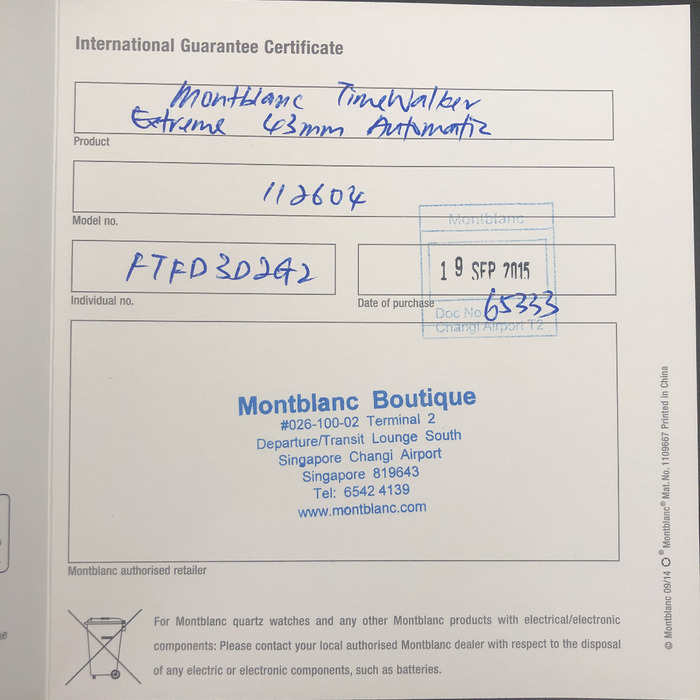 International Guarantee Certificate
Montblanc TimeWalker
Extreme 43mm Automatic
Product
112604
Model no.
Montblanc
FTFD3D2G2
19 SEP 2015
Individual no.
Date of purchase
Doc No. 65333
Changi Airport T2
Montblanc Boutique
#026-100-02 Terminal 2
Departure/Transit Lounge South
Singapore Changi Airport
Singapore 819643
Tel: 6542 4139
www.montblanc.com
Montblanc authorised retailer
For Montblanc quartz watches and any other Montblanc products with electrical/electronic
components: Please contact your local authorised Montblanc dealer with respect to the disposal
of any electric or electronic components, such as batteries.
© Montblanc 09/14 ® Montblanc® Mat. No. 1109667 Printed in China